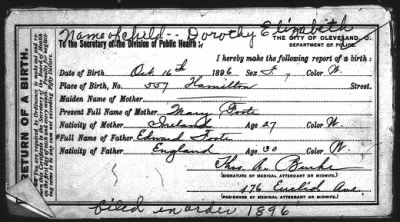 Name of child - - Dorothy Elizabeth
THE CITY OF CLEVELAND, O.
To the Secretary of the Division of Public Health:
DEPARTMENT OF POLICE.
I hereby make the following report of a birth:
Date of Birth Oct 16th 1896 Sex F. Color W.
Place of Birth, No. 557 Hamilton Street.
Maiden Name of Mother
Present Full Name of Mother Mary Foote
Nativity of Mother Ireland Age 27 Color W.
*Full Name of Father Edward Foote
Nativity of Father England Age 30 Color W.
Thos. A. Burke
(SIGNATURE OF MEDICAL ATTENDANT OR MIDWIFE.)
176 Euclid Ave.
(RESIDENCE OF MEDICAL ATTENDANT OR MIDWIFE.)
filed in order 1896
RETURN OF A BIRTH.